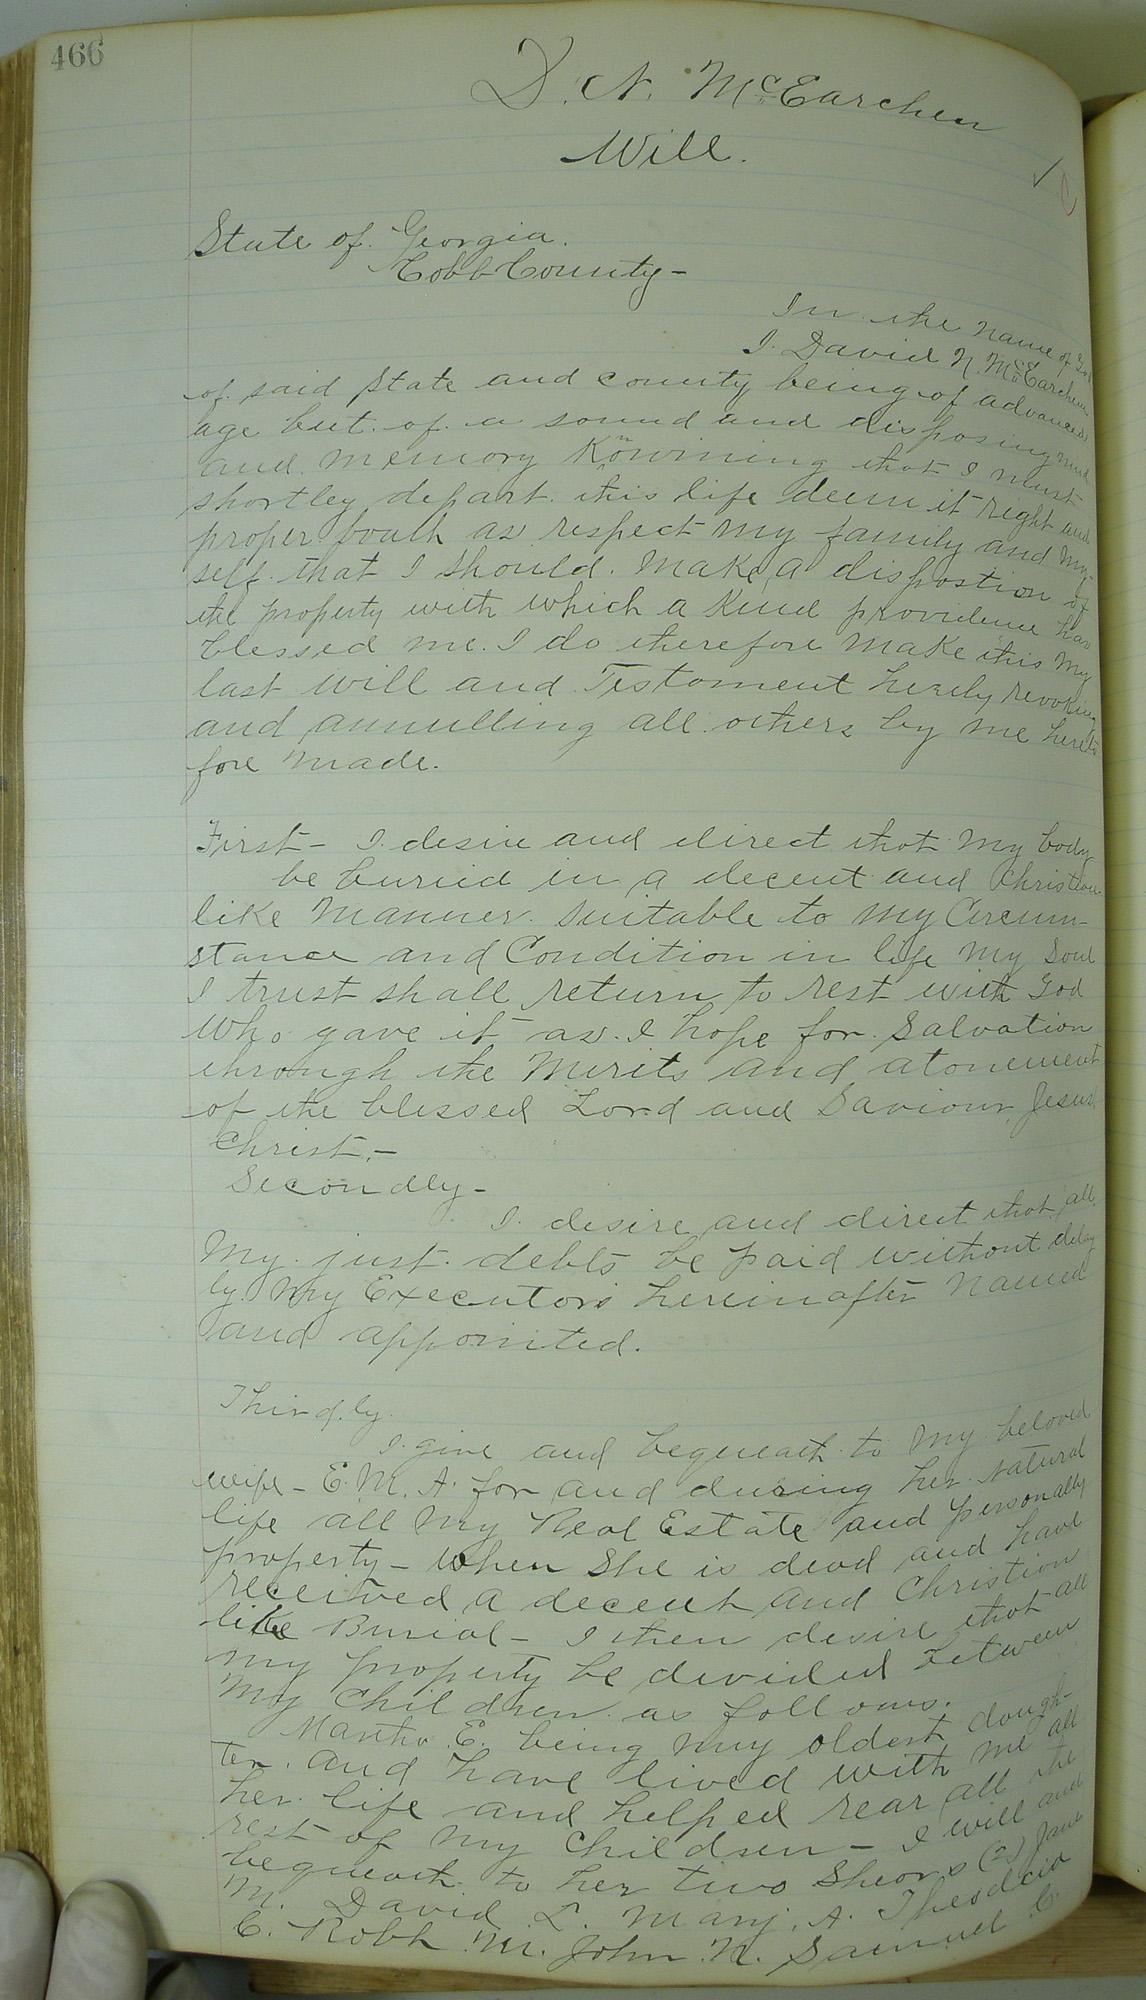 466
D. N. McEarchen
Will.
State of Georgia.
Cobb County-
In the name of God
I. David N. McEarchen
of said State and county being of advanced
age but of a sound and disposing mind
and memory Konwining that I must
shortley depart this life deem it right and
proper boath as respect my family and my-
self that I should. Make a dispostion of
the property with which a Kind providence has
blessed me. I do therefore make this my
last will and Testoment hereby revoking
and annulling all others by me hereto
fore made.
First- I desire and direct that my body
be buried in a decent and christian
like manner suitable to my Circum-
stance and Condition in life my Soul
I trust shall return to rest with God
who gave it as I hope for Salvation
through the Merits and atonement
of the blessed Lord and Saviour Jesus
Christ.-
Secondly-
I. desire and direct that all
My just debts be paid without delay
by My Executors hereinafter named
and appointed.
Thirdly.
I give and bequeath to my beloved
wife- E. M. A. for and during her natural
life all my Real Estate and personally
property- when She is dead and have
received a decent and Christion
like Burial- I then desire that all
my property be divided between
my children as follows.
Martha E. being my oldest daugh-
ter and have lived with me all
her life and helped rear all the
rest of my children- I will and
bequeath to her two Shears (2) Jane
M. David L. Marj. A. Theodcia
C. Robt M. John N. Samuel C.